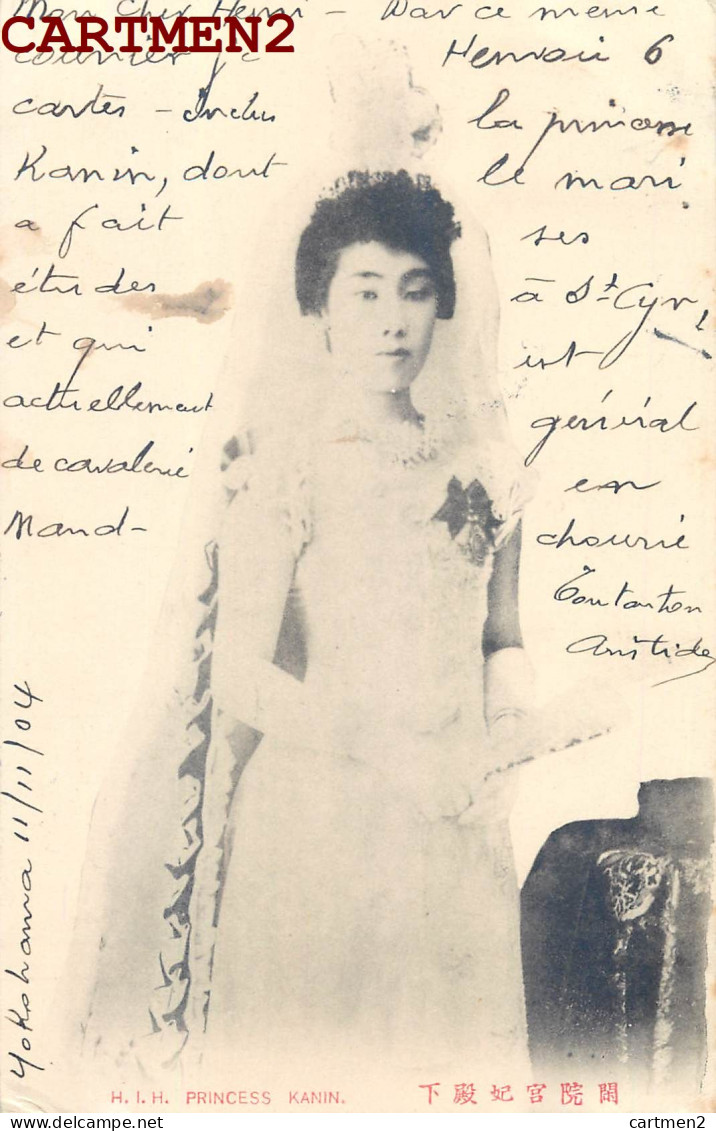 Mon Cher Henri – Par ce même
CARTMEN2
courrier je t'envoie 6
cartes – Inclus la princesse
Kanin, dont le mari
a fait ses
études à St Cyr,
et qui est
actuellement général
de cavalerie en
Mandchourie
Tout à ton
Aristide
Yokohama 11/11/04
H. I. H. PRINCESS KANIN.
下殿妃宮院閑
cartmen2